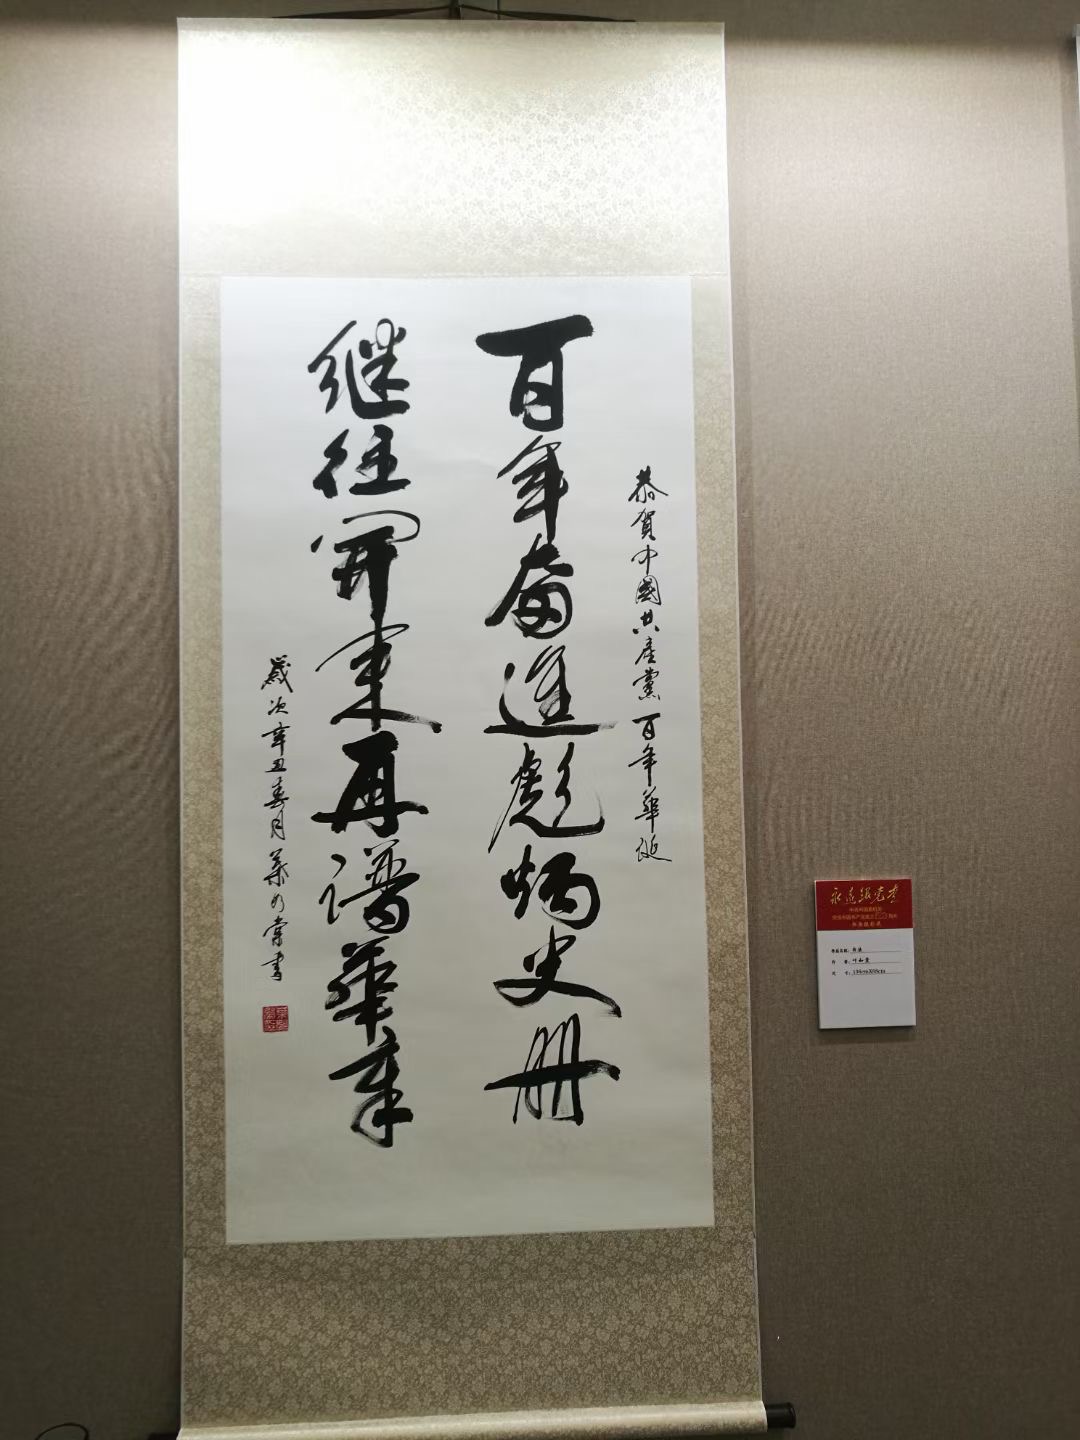 恭賀中國共產黨百年華誕
百年奮進彪炳史册
继往開来再谱華章
歲次辛丑春月葉如棠書
永远跟党走
作品名称：书法
作 者：叶如棠
尺 寸：